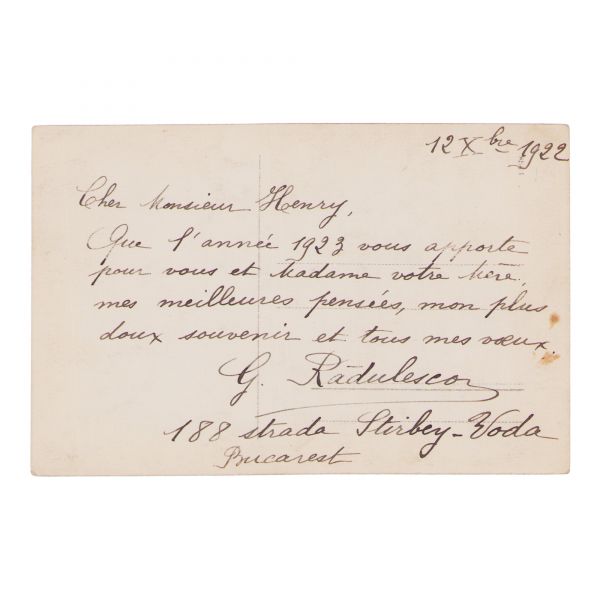 12 Xbre 1922
Cher Monsieur Henry,
Que l'année 1923 vous apporte
pour vous et Madame votre Mère,
mes meilleures pensées, mon plus
doux souvenir et tous mes vœux.
G. Radulescou
188 strada Stirbey-Voda
Bucarest